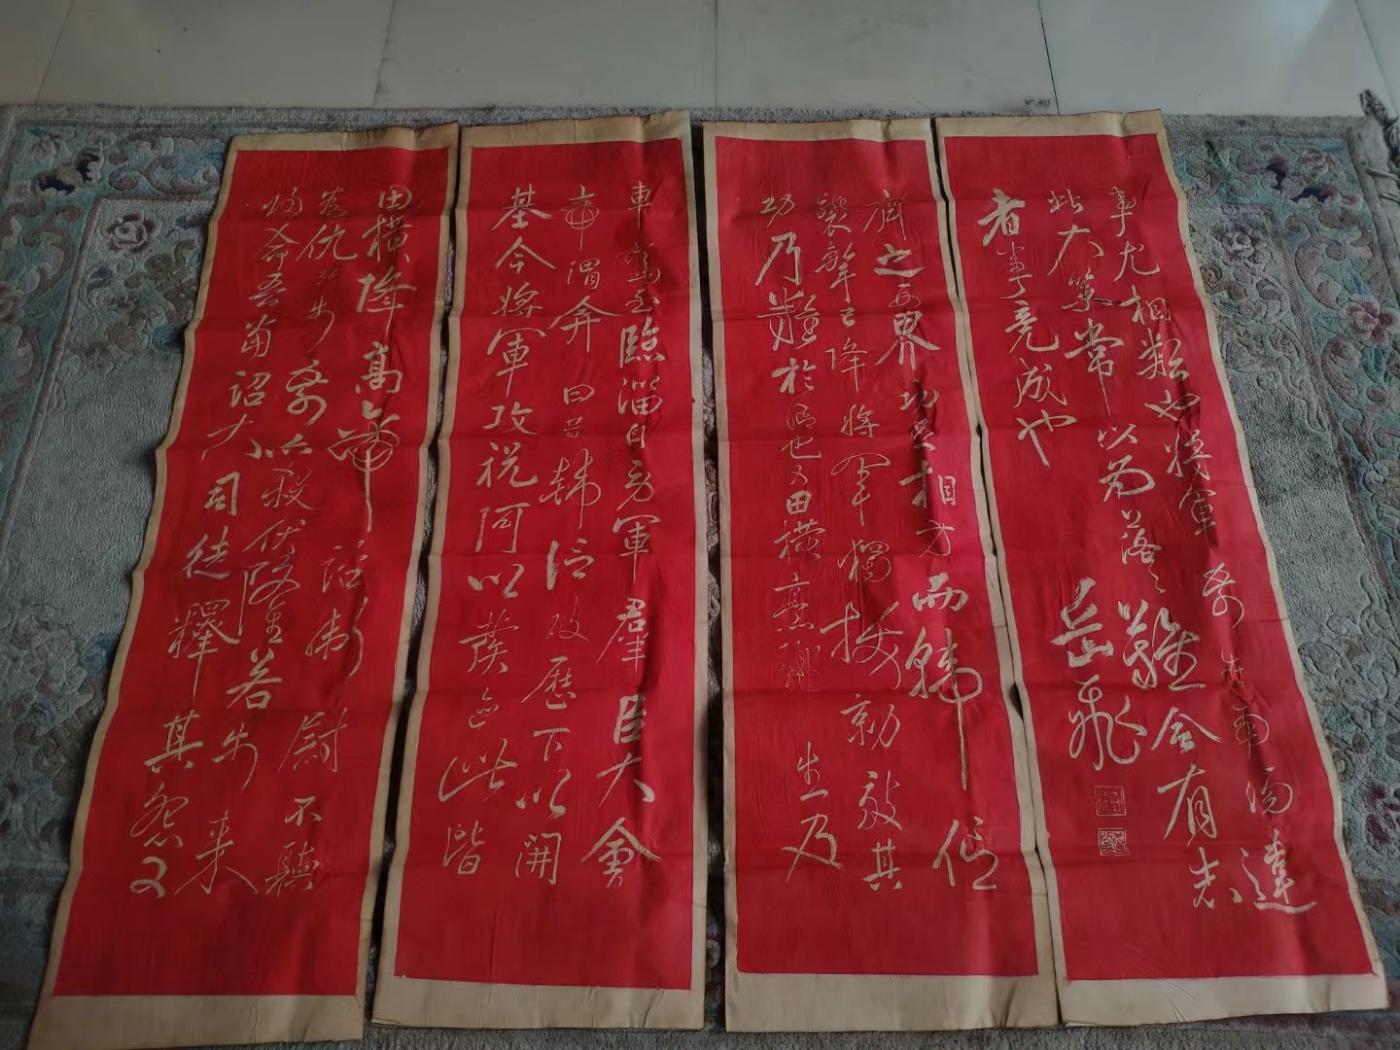 車駕至臨淄自勞軍羣臣大會
帝謂弇曰昔韓信破歷下以開
基今將軍攻祝阿以發跡此皆
齊之西界功足相方而韓信
襲擊已降將軍獨拔勍敵其
功乃難於信也又田橫烹酈生及
田橫降高帝詔衛尉不聽
為仇張步前亦殺伏隆若步來
歸命吾當詔大司徒釋其怨又
事尤相類也將軍前在南陽建
此大策常以為落々難合有志
者事竟成也
岳飛